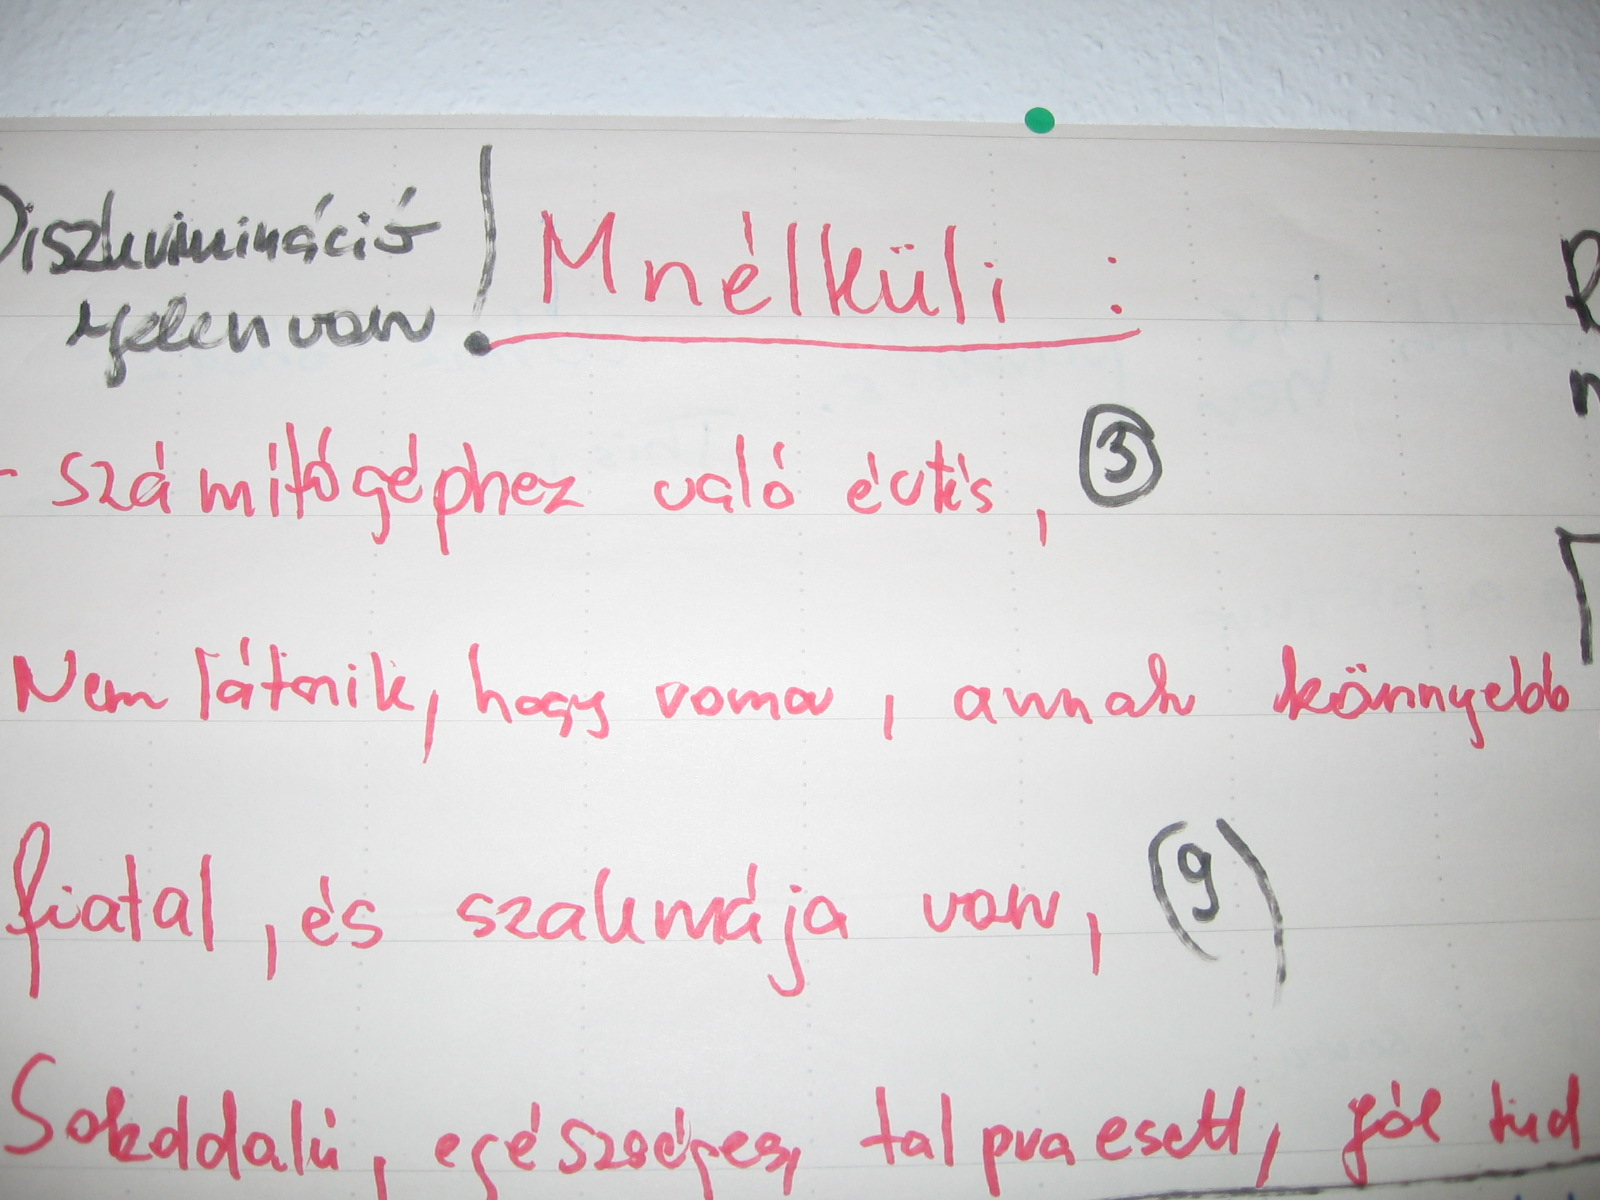 Diszkrimináció
jelen van !
Mnélküli :
- számítógéphez való értés, 3
Nem látszik, hogy roma, annak könnyebb
fiatal, és szakmája van, (9)
Sokoldalú, egészséges, talpraesett, jól tud